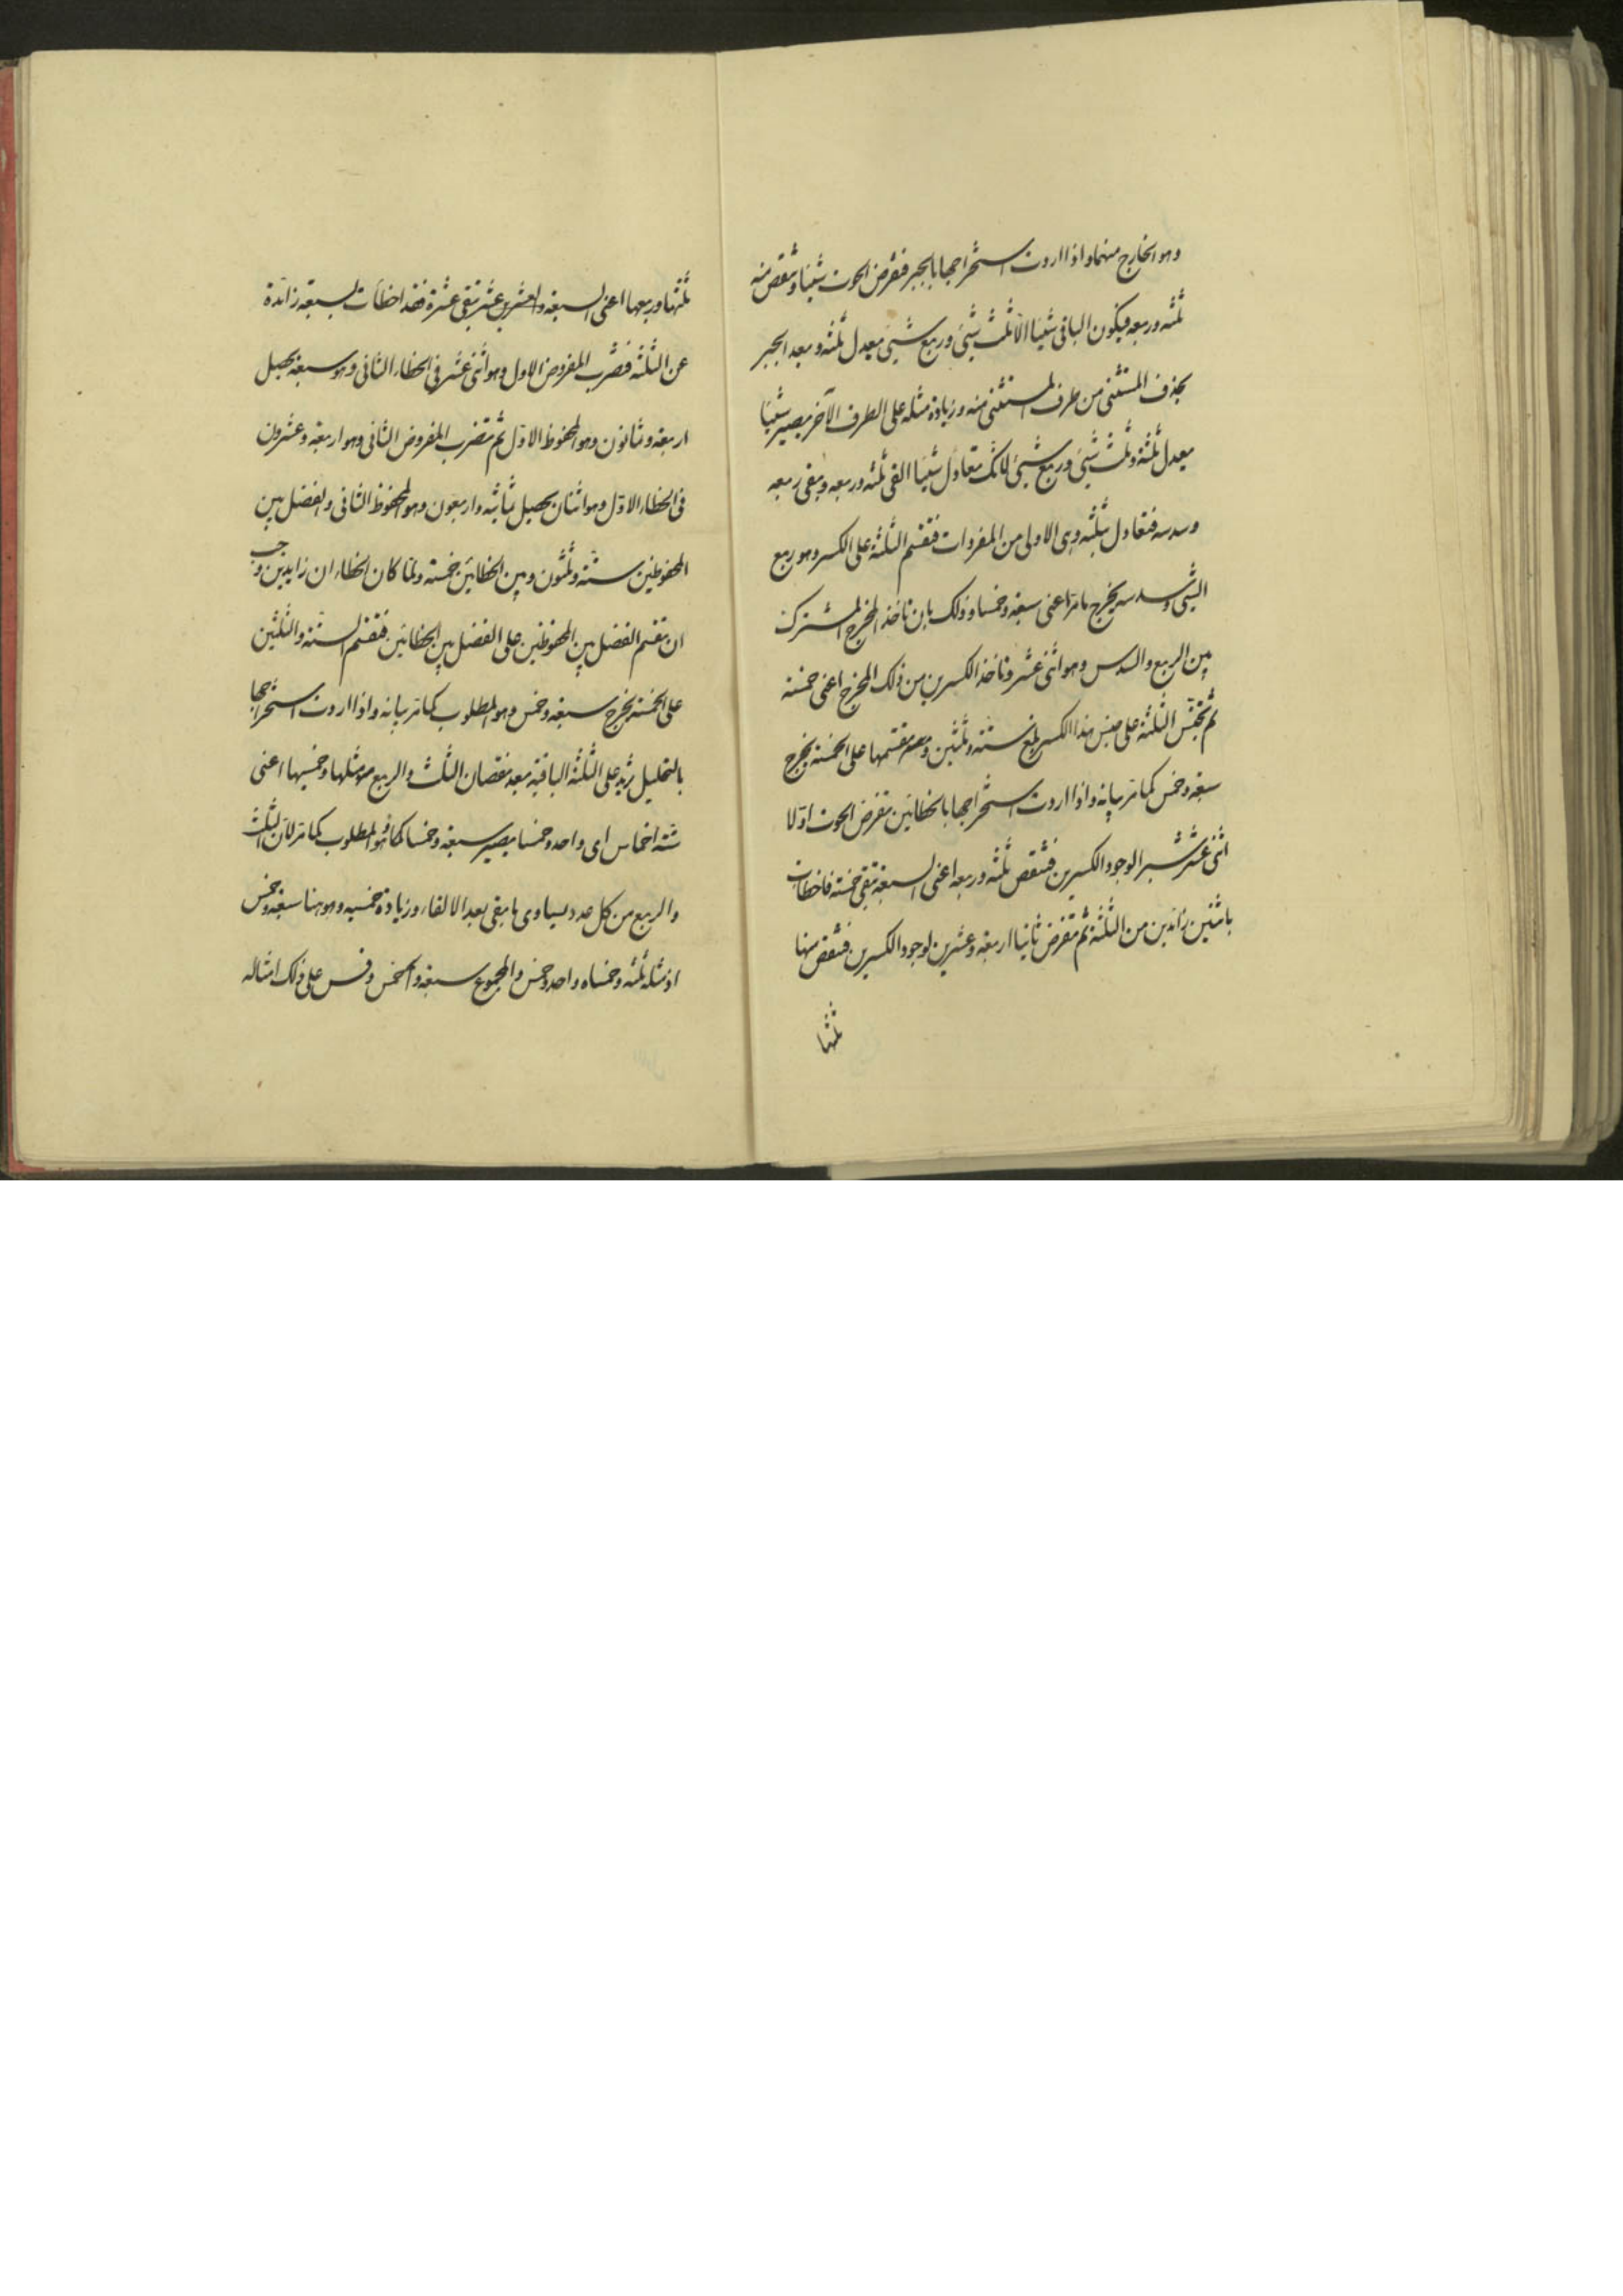 وهو الخارج منهما واذا اردت استخراجها بالجبر فنفرض الحوت شيئا وتنقص منه
ثلثه وربعه فيكون الباقى شيئا الا ثلث شيئ وربع شيئ يعدل ثلثه وبعد الجبر
بحذف المستثنى من طرف المستثنى منه وزيادة مثله على الطرف الآخر يصير شيئا
يعدل ثلثة وثلث شيئ وربع شيئ لانك تعادل شيئا القى ثلثه وربعه وبقى ربعه
وسدسه فتعادل بثلثه وهى الاولى من المفردات فتقسم الثلثة على الكسر وهو ربع
الشيئ وسدسه يخرج ما مر اعنى سبعة وخمسا وذلك بان تاخذ المخرج المشترك
بين الربع والسدس وهو اثنى عشر وتاخذ الكسرين من ذلك المخرج اعنى خمسة
ثم تجنس الثلثة على جنس هذا الكسر يبلغ ستة وثلثين تقسمها على الخمسة يخرج
سبعة وخمس كما مر بيانه واذا اردت استخراجها بالخطائين تفرض الحوت اولا
اثنى عشر شبرا لوجود الكسرين فتنقص ثلثه وربعه اعنى السبعة تبقى خمسة فاخطات
باثنين زائدين من الثلثة ثم تفرض ثانيا اربعة وعشرين لوجود الكسرين فتنقص منها
ثلثها
ثلثها وربعها اعنى السبعة والعشر تبقى عشرة فقد اخطأت بسبعة زائدة
عن الثلثة فتضرب المفروض الاول وهو اثنى عشر فى الخطاء الثانى وهو سبعة يحصل
اربعة وثمانون وهو المحفوظ الاول ثم تضرب المفروض الثانى وهو اربعة وعشرون
فى الخطاء الاول وهو اثنان يحصل ثمانية واربعون وهو المحفوظ الثانى والفضل بين
المحفوظين ستة وثلثون وبين الخطائين خمسة ولما كان الخطاء ان زايدين وجب
ان تقسم الفضل بين المحفوظين على الفضل بين الخطائين فتقسم الستة والثلثين
على الخمسة يخرج سبعة وخمس وهو المطلوب كما مر بيانه واذا اردت استخراجها
بالتحليل تزيد على الثلثة الباقية بعد نقصان الثلث والربع مثلها وخمسيها اعنى
ستة اخماس اى واحد وخمسا يصير سبعة وخمسا كما هو المطلوب كما مر لان الثلث
والربع من كل عدد يساوى ما بقى بعد الالقاء وزيادة خمسيه وهو هنا سبعة وخمس
اذ مثله ثلثه وخمساه واحد وخمس والمجموع سبعة والخمس وقس على ذلك امثاله